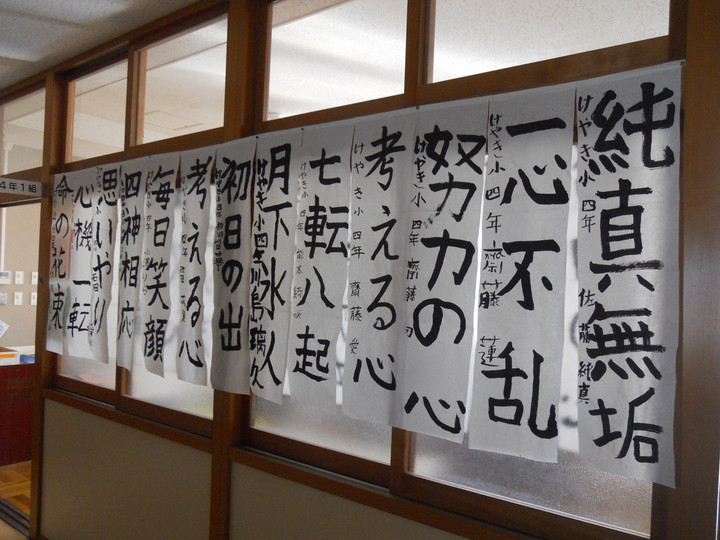 純真無垢
けやき小四年 佐藤純真
一心不乱
けやき小四年 齋藤蓮
努力の心
けやき小四年 齋藤
考える心
けやき小四年 齋藤
七転八起
けやき小四年
月下氷人
けやき小四年
初日の出
考える心
毎日笑顔
四神相応
思いやり
心機一転
命の花束
4年1組